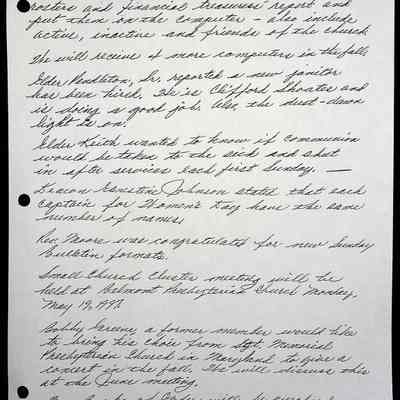 rosters and financial treasurers report and
put them on the computer - also include
active, inactive and friends of the church
We will receive 4 more computers in the fall
Elder Pendleton, Sr. reported a new janitor
has been hired. He is Clifford Shoater and
is doing a good job. Also, the dusk-dawn
light is on.
Elder Keith wanted to know if communion
would be taken to the sick and shut
in after services each first Sunday. —
Deacon Johnson stated that each
captain for Women's Day have the same
number of names.
Rev. Moore was congratulated for new Sunday
Bulletin formats.
Small Church Cluster meeting will be
held at Belmont Presbyterian Church Monday,
May 19, 1997.
Bobby Greene, a former member would like
to bring his choir from Memorial
Presbyterian Church in Maryland to give a
concert in the fall. We will discuss this
at the June meeting.